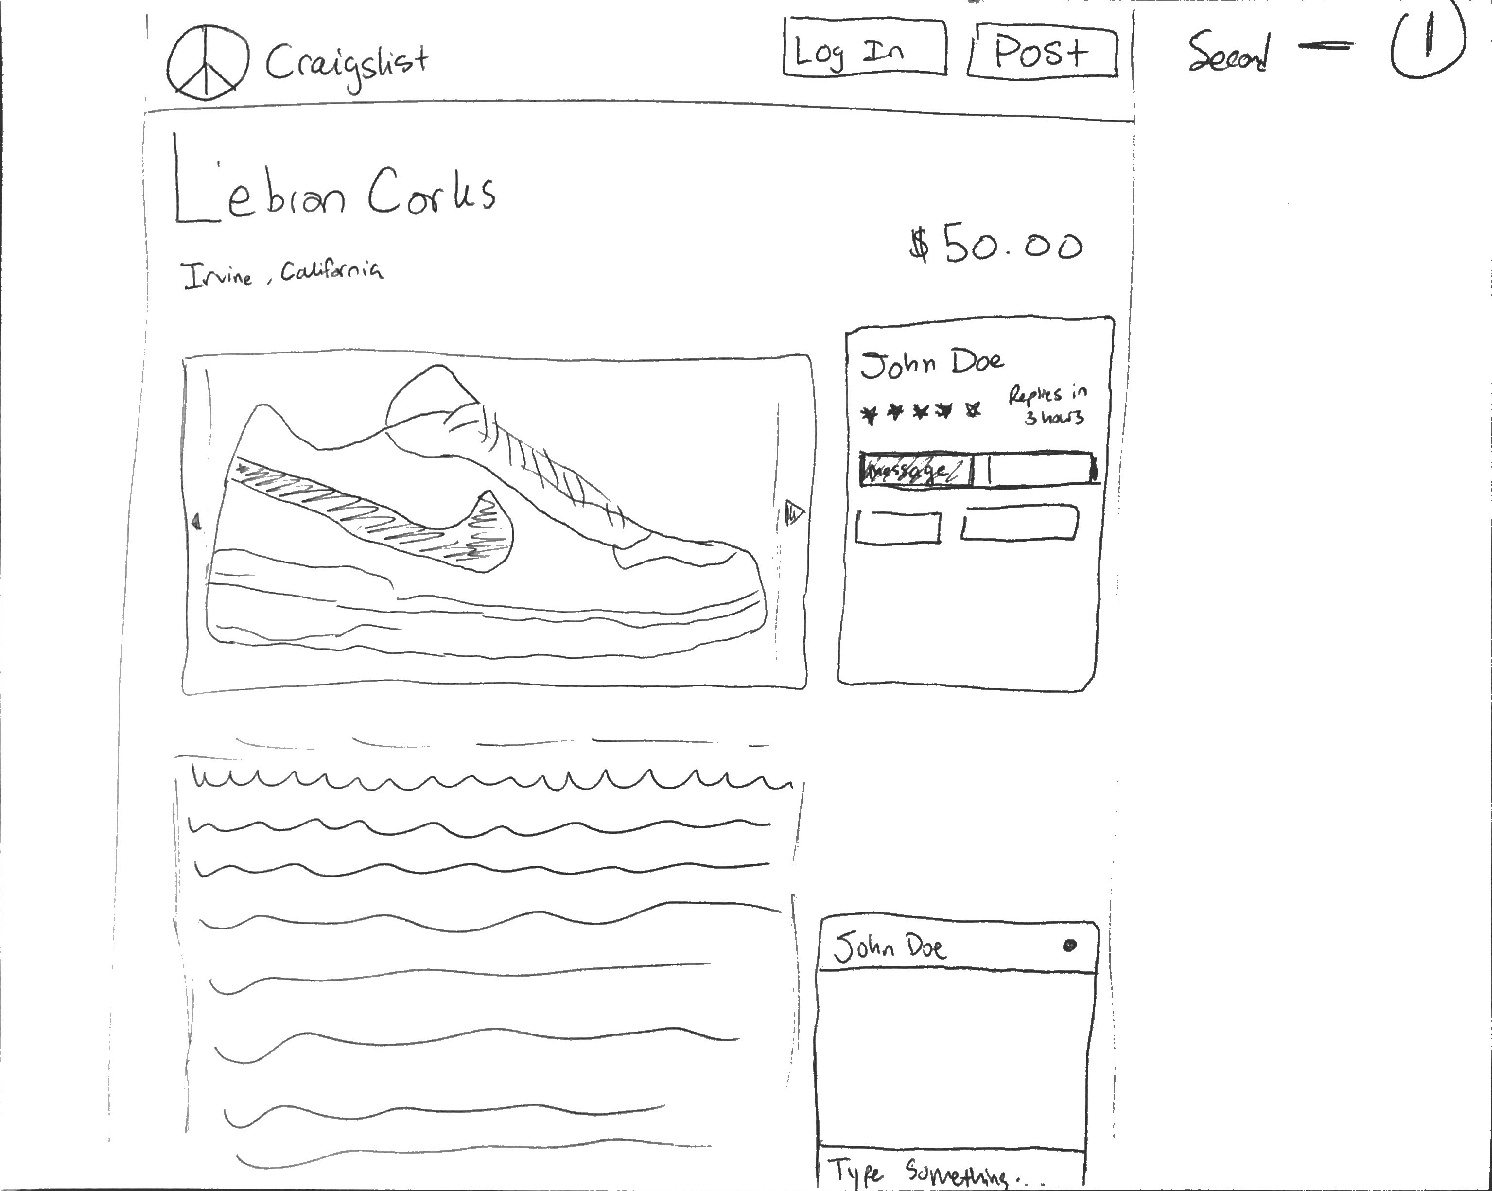 Craigslist
Log In
Post
Second — 1
Lebron Corks
$50.00
Irvine, California
John Doe
Replies in
3 hours
message
John Doe
Type Something...